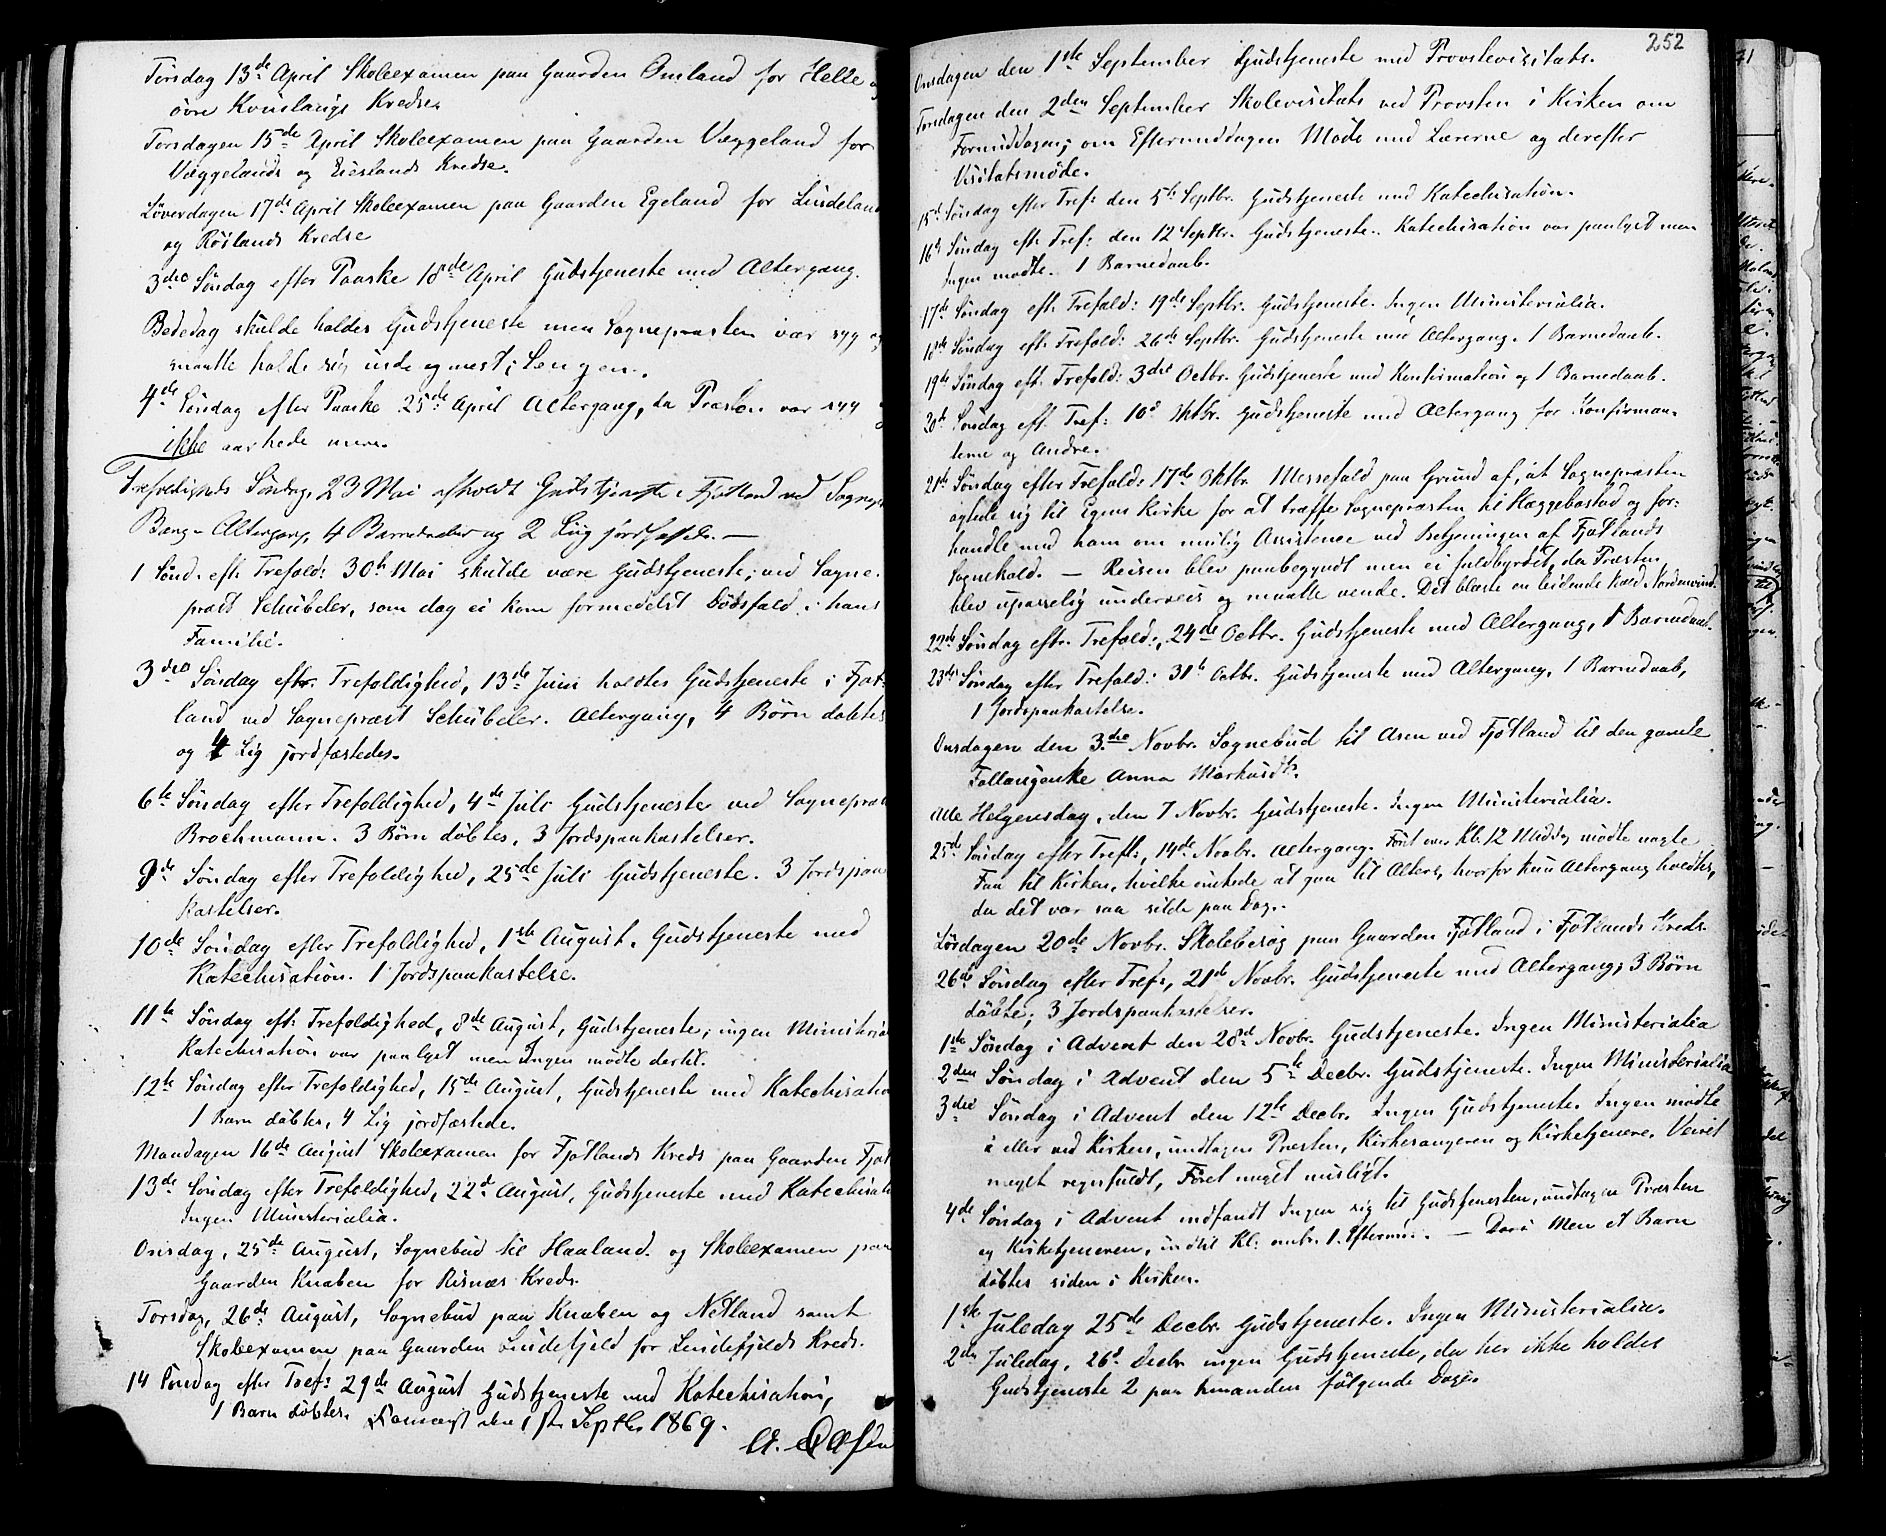 Tirsdag 13de April Skoleexamen paa Gaarden Omland for Helle og
øvre Kvinslaugs Kredse.
Torsdagen 15de April Skoleexamen paa Gaarden Væggeland for
Væggelands og Eieslands Kredse.
Løverdagen 17de April Skoleexamen paa Gaarden Egeland for Lindeland
og Röilands Kredse
3die Søndag efter Paaske 18de April Gudstjeneste med Altergang.
Bededag skulde holdes Gudstjeneste men Sognepræsten var syg og
maatte holde sig inde og mest i Sengen.
4de Søndag efter Paaske 25de April Altergang, da Præsten var syg
ikke aarkede mere.
Trefoldigheds Søndag, 23 Mai afholdt Gudstjeneste i Fjotland ved Sognepr.
Bang - Altergang, 4 Barnedaab og 2 Liig jordfæst. —
1 Sønd. eft. Trefold: 30te Mai skulde være Gudstjeneste, ved Sogne-
præst Schübeler, som dog ei kom formedelst Dødsfald i hans
Familie.
3die Søndag eftr. Trefoldighed, 13de Juni holdtes Gudstjeneste i Fjot-
land ved Sognepræst Schübeler. Altergang, 4 Børn døbtes
og 4 Lig jordfæstedes.
6te Søndag efter Trefoldighed, 4de Juli Gudstjeneste ved Sognepræst
Brochmann. 3 Børn døbtes, 3 Jordspaakastelser.
9de Søndag efter Trefoldighed, 25de Juli Gudstjeneste. 3 Jordspaa-
kastelser.
10de Søndag efter Trefoldighed, 1ste August. Gudstjeneste med
Katechisation. 1 Jordspaakastelse.
11te Søndag eft: Trefoldighed, 8de August, Gudstjeneste, ingen Ministerialia
Katechisation var paalyst men Ingen mødte dertil.
12te Søndag efter Trefoldighed, 15de August, Gudstjeneste med Katechisation
1 Barn døbtes, 4 Lig jordfæstede.
Mandagen 16de August Skoleexamen for Fjotlands Kreds paa Gaarden Fjot
13de Søndag efter Trefoldighed, 22d August, Gudstjeneste med Katechisat
Ingen Ministerialia.
Onsdag, 25de August, Sognebud til Haaland og Skoleexamen paa
Gaarden Knaben for Risnæs Kreds.
Torsdag, 26de August, Sognebud paa Knaben og Netland samt
Skoleexamen paa Gaarden Lindefjeld for Lindefjelds Kreds.
14 Søndag efter Tref: 29de August Gudstjeneste med Katechisation,
1 Barn døbtes. den 1ste Septbr 1869.
252
Onsdagen den 1ste September Gudstjeneste med Provstevisitats.
Torsdagen den 2den September Skolevisitats ved Provsten i Kirken om
Formiddagen; om Eftermiddagen Møde med Lærerne og derefter
Visitatsmøde.
15d Søndag efter Tref: den 5te Septbr. Gudstjeneste med Katechisation.
16d Søndag eft. Tref: den 12 Septbr. Gudstjeneste. Katechisation var paalyst men
Ingen mødte. 1 Barnedaab.
17de Søndag eft. Trefold: 19de Septbr. Gudstjeneste. Ingen Ministerialia.
18de Søndag eft. Trefold: 26de Septbr. Gudstjeneste med Altergang. 1 Barnedaab.
19de Søndag eft. Trefold: 3die Octbr. Gudstjeneste med Konfirmation og 1 Barnedaab.
20de Søndag eft. Tref: 10d Oktbr. Gudstjeneste med Altergang for Konfirman-
terne og Andre.
21de Søndag efter Trefold: 17de Oktbr. Messefald paa Grund af, at Sognepræsten
agtede sig til Egens Kirke for at træffe Sognepræsten til Hæggebostad og for-
handle med ham om mulig Assistence ved Betjeningen af Fjotlands
Sognekald. — Reisen blev paabegyndt men ei fuldbyrdet, da Præsten
blev upasselig underveis og maatte vende. Det blæste en bidende kold Nordenvind.
22de Søndag eftr. Trefold:, 24de Octbr. Gudstjeneste med Altergang, 1 Barnedaab.
23de Søndag efter Trefold: 31te Octbr. Gudstjeneste med Altergang, 1 Barnedaab,
1 Jordspaakastelse.
Onsdagen den 3die Novbr. Sognebud til Asen ved Fjotland til den gamle
Anna Markusdtr.
Alle Helgensdag, den 7 Novbr. Gudstjeneste. Ingen Ministerialia.
25d Søndag efter Tref:, 14de Novbr. Altergang. Først over Kl. 12 Middag mødte nogle
Faa til Kirken, hvilke ønskede at gaa til Alters, hvorfor kun Altergang holdtes,
da det var saa silde paa Dag.
Lørdagen 20de Novbr. Skolebesøg paa Gaarden Fjotland i Fjotlands Kreds.
26de Søndag efter Tref:, 21de Novbr. Gudstjeneste med Altergang; 3 Børn
døbte; 3 Jordspaakastelser.
1ste Søndag i Advent den 28d Novbr. Gudstjeneste. Ingen Ministerialia
2den Søndag i Advent den 5te Decbr. Gudstjeneste. Ingen Ministerialia
3die Søndag i Advent den 12te Decbr. Ingen Gudstjeneste. Ingen mødte
i eller ved Kirken, undtagen Præsten, Kirkesangeren og Kirketjenere. Veiret
meget regnfuldt, Føret meget misligt.
4de Søndag i Advent indfandt Ingen sig til Gudstjenesten, undtagen Præsten
og Kirketjeneren, indtil Kl: omtr. 1 Eftermid. — Men et Barn
døbtes siden i Kirken.
1ste Juledag 25de Decbr. Gudstjeneste. Ingen Ministerialia.
2den Juledag, 26d Decbr ingen Gudstjeneste, da her ikke holdes
Gudstjeneste 2 paa hinanden følgende Dage.